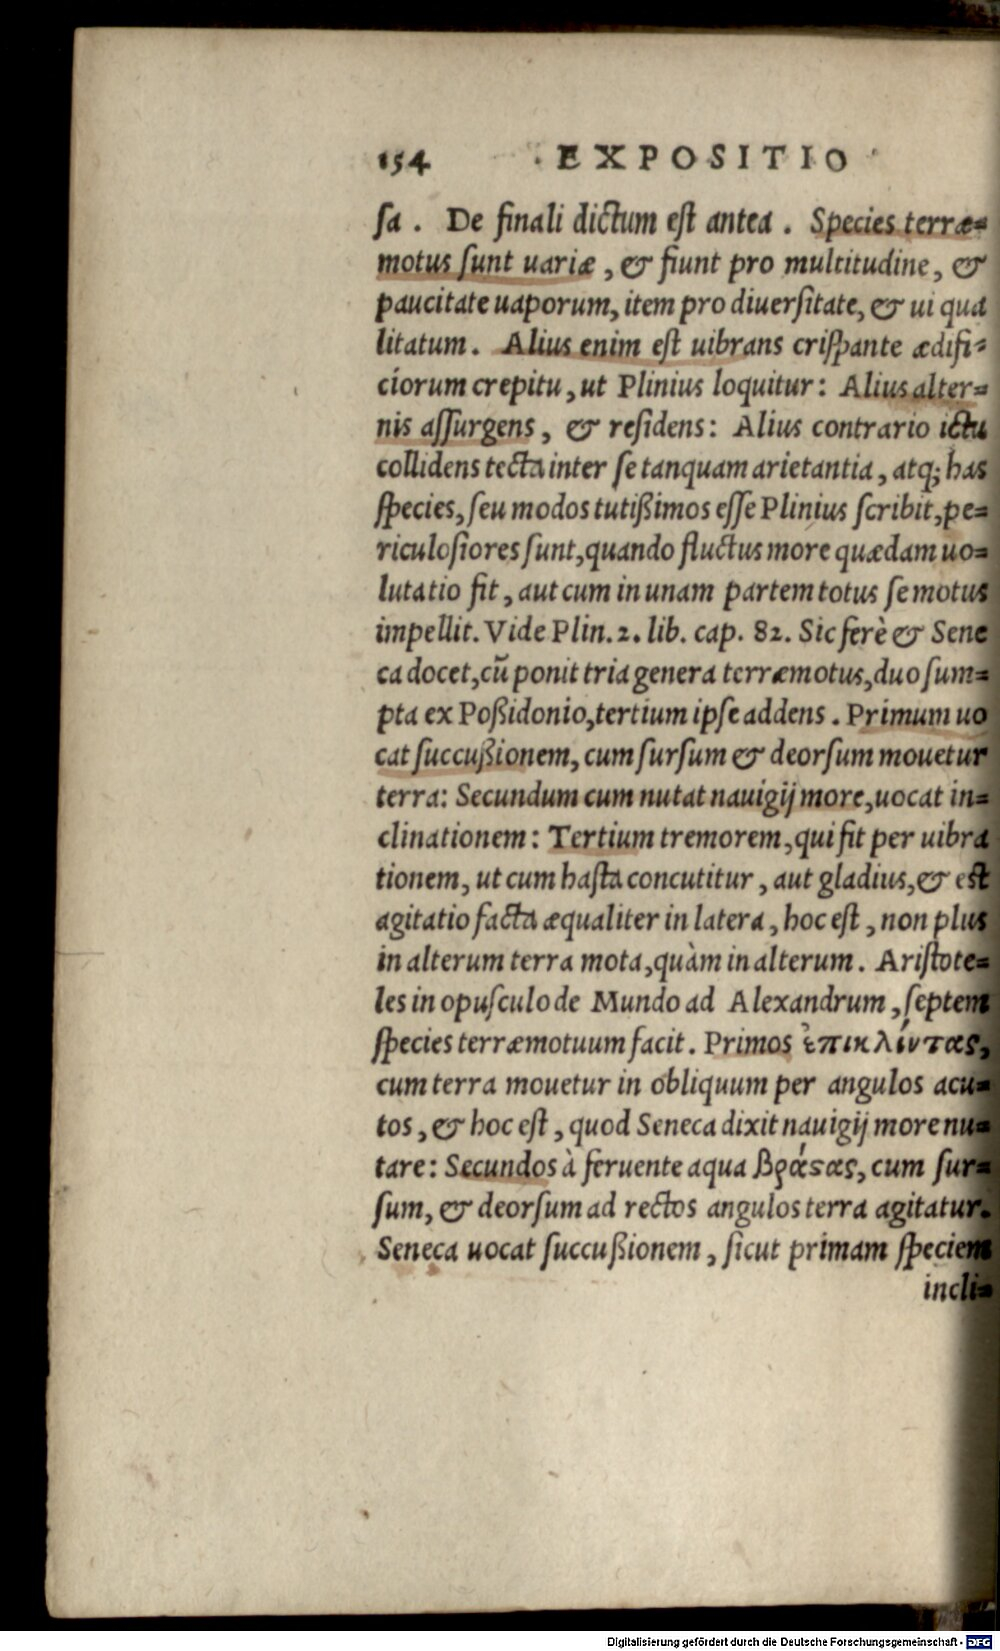 154 EXPOSITIO
ſa. De finali dictum eſt antea. Species terræ=
motus ſunt uariæ, & fiunt pro multitudine, &
paucitate uaporum, item pro diuerſitate, & ui qua
litatum. Alius enim eſt uibrans criſpante ædifi=
ciorum crepitu, ut Plinius loquitur: Alius alter=
nis aſſurgens, & reſidens: Alius contrario ictu
collidens tecta inter ſe tanquam arietantia, atq; has
ſpecies, ſeu modos tutißimos eſſe Plinius ſcribit, pe=
riculoſiores ſunt, quando fluctus more quædam uo=
lutatio fit, aut cum in unam partem totus ſe motus
impellit. Vide Plin. 2. lib. cap. 82. Sic ferè & Sene
ca docet, cū ponit tria genera terræmotus, duo ſum=
pta ex Poßidonio, tertium ipſe addens. Primum uo
cat ſuccußionem, cum ſurſum & deorſum mouetur
terra: Secundum cum nutat nauigij more, uocat in=
clinationem: Tertium tremorem, qui fit per uibra
tionem, ut cum haſta concutitur, aut gladius, & eſt
agitatio facta æqualiter in latera, hoc eſt, non plus
in alterum terra mota, quàm in alterum. Ariſtote=
les in opuſculo de Mundo ad Alexandrum, ſeptem
ſpecies terræmotuum facit. Primos ἐπικλίντας,
cum terra mouetur in obliquum per angulos acu=
tos, & hoc eſt, quod Seneca dixit nauigij more nu=
tare: Secundos à feruente aqua βράϛας, cum ſur=
ſum, & deorſum ad rectos angulos terra agitatur.
Seneca uocat ſuccußionem, ſicut primam ſpeciem
incli=
Digitalisierung gefördert durch die Deutsche Forschungsgemeinschaft - DFG